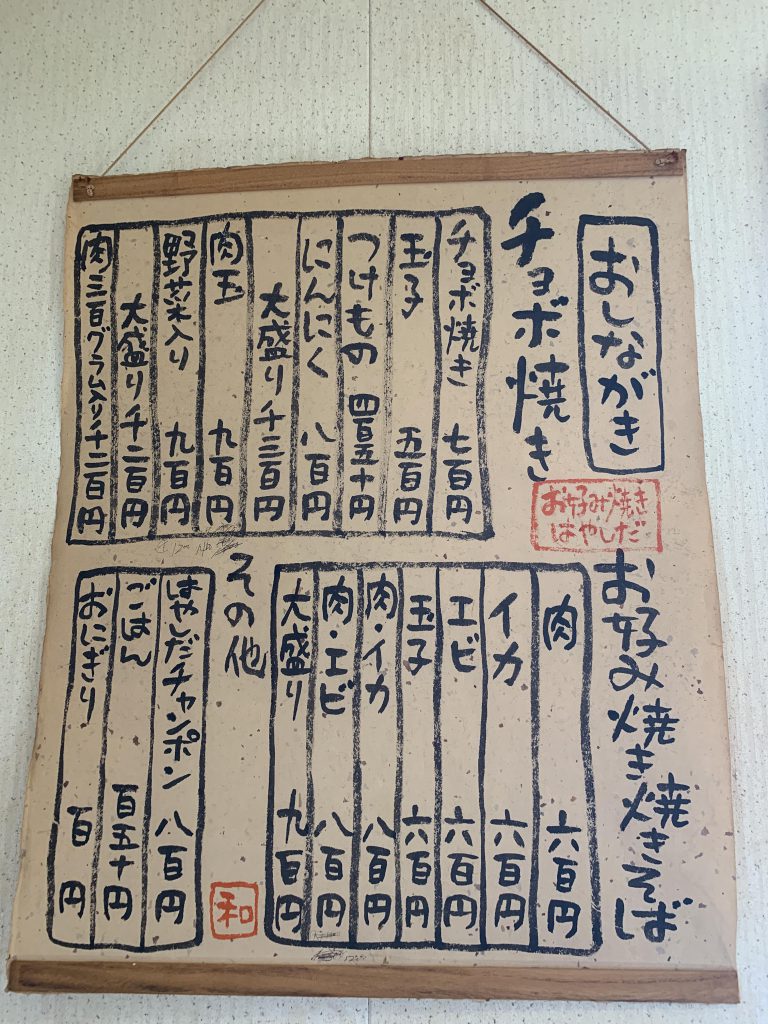 おしながき
チョボ焼き
チョボ焼き 七百円
玉子 五百円
つけもの 四百五十円
にんにく 八百円
大盛り 千三百円
肉玉 九百円
野菜入り 九百円
大盛り 千二百円
肉三百グラム入り 千二百円
お好み焼き
はやしだ
お好み焼き 焼きそば
肉 六百円
イカ 六百円
エビ 六百円
玉子 六百円
肉・イカ 八百円
肉・エビ 八百円
大盛り 九百円
その他
はやしだチャンポン 八百円
ごはん 百五十円
おにぎり 百円
和